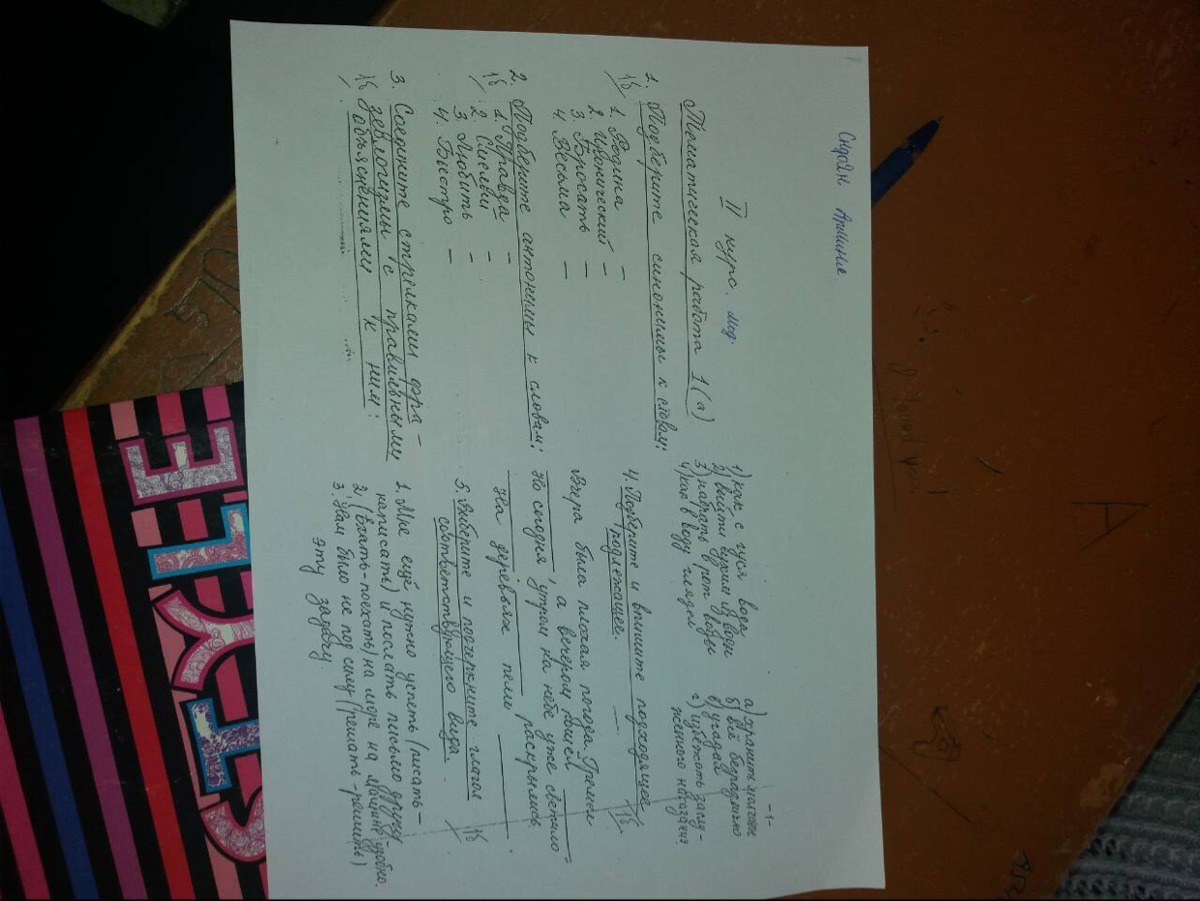 Тематическая работа 1(а)
II курс. мед.
1. Подберите синонимы к словам:
1б
1. Родина –
2. Иронический –
3. Бросать –
4. Весьма –
2. Подберите антонимы к словам:
1б
1. Правда –
2. Смелый –
3. Любить –
4. Быстро –
3. Соедините стрелками фра-
зеологизмы с правильными
1б объяснениями к ним:
-1-
1) как с гуся вода
2) выйти сухим из воды
3) набрать в рот воды
4) как в воду глядел
а) хранить молчание
б) всё безразлично
в) угадал
г) избежать заслу-
женного наказания
4. Подберите и впишите подходящее
подлежащее. 1б
Вчера была плохая погода. Гремел
___, а вечером пошел ___.
Но сегодня утром на небе уже светило
___ раскрылись.
На деревьях пели ___.
5. Выберите и подчеркните глагол
соответствующего вида. 1б
1. Мне ещё нужно успеть (писать –
написать) и послать письмо другу.
2. (Взять-поехать) на море на машине удобно.
3. Нам было не под силу (решать-решить)
эту задачу
STYLE
A